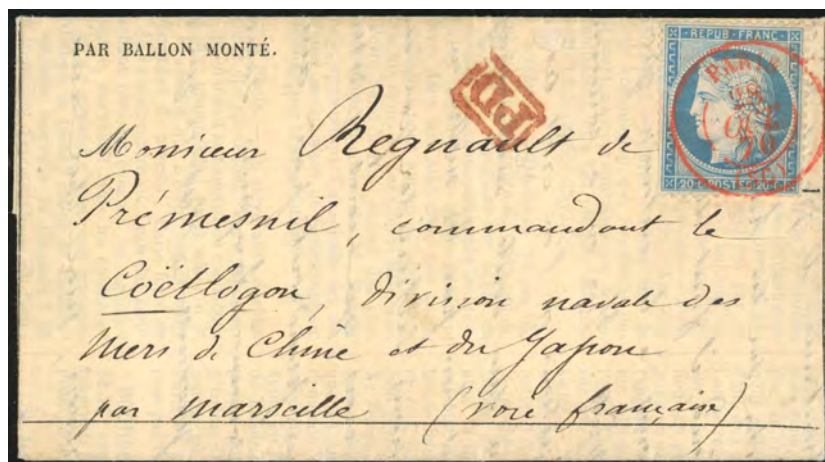 PAR BALLON MONTÉ.
REPUB. FRANC.
PARIS
(SC)
70
20 c POSTES 20 c
PD
Monsieur Regnault de
Prémesnil, commandant le
Coëtlogon, division navale des
mers de Chine et du Japon
par Marseille (voie française)